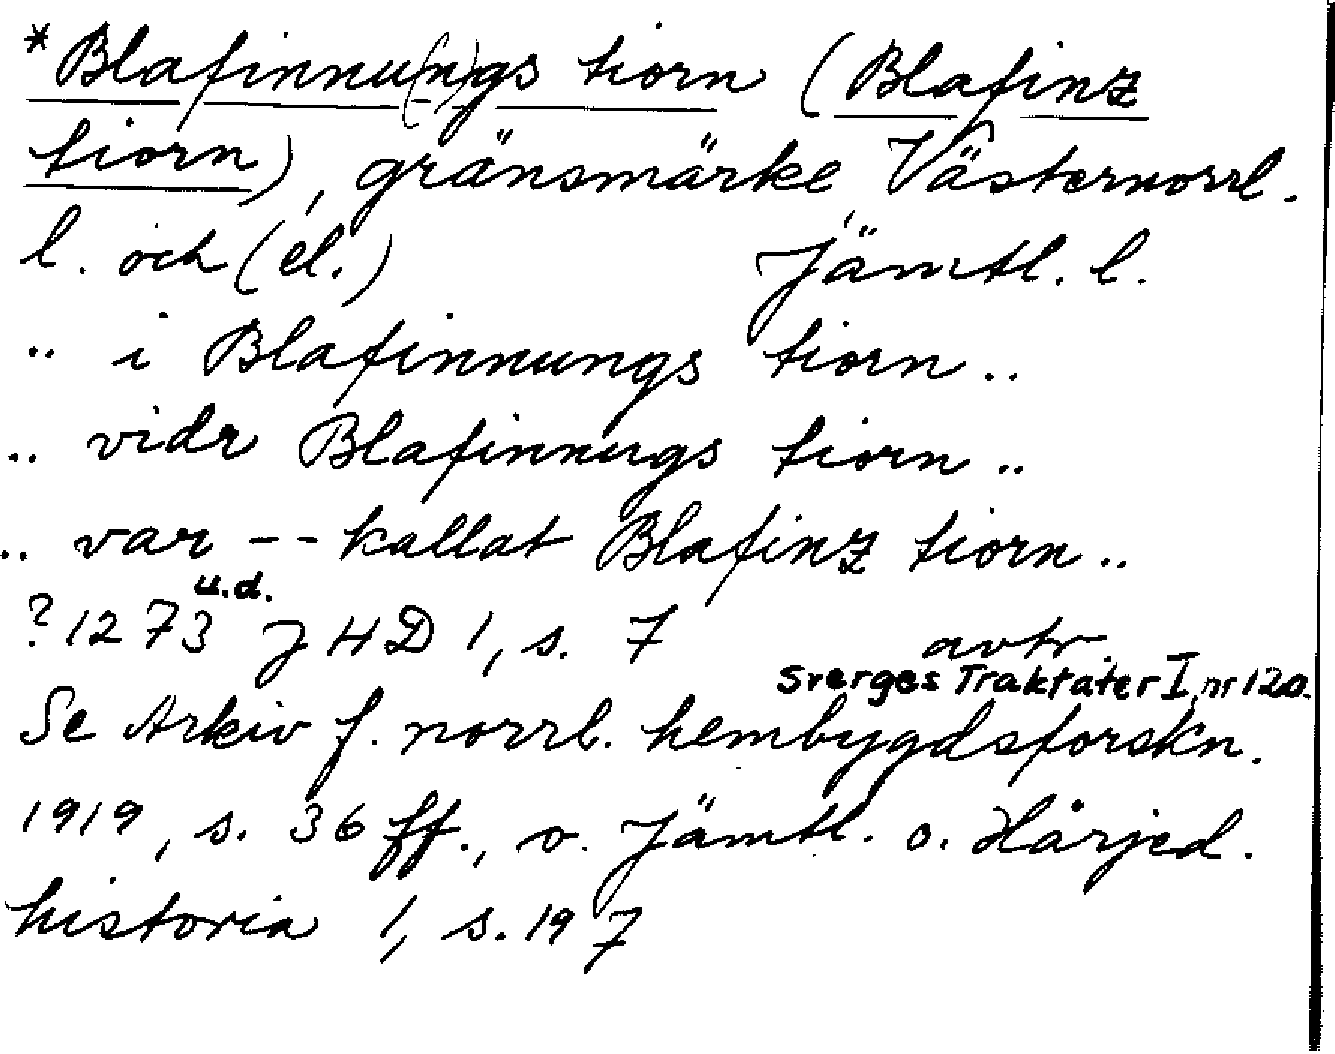 *Blafinnu(n)gs tiorn (Blafinz
tiorn), gränsmärke Västernorrl.
l. och (el.) Jämtl. l.
.. i Blafinnungs tiorn ..
.. vidr Blafinnugs tiorn ..
.. var -- kallat Blafinz tiorn ..
u.d.
?1273 JHD 1, s. 7 avtr.
Sverges Traktater I, nr 120.
Se Arkiv f. norrl. hembygdsforskn.
1919, s. 36 ff., o. Jämtl. o. Härjed.
historia 1, s. 197